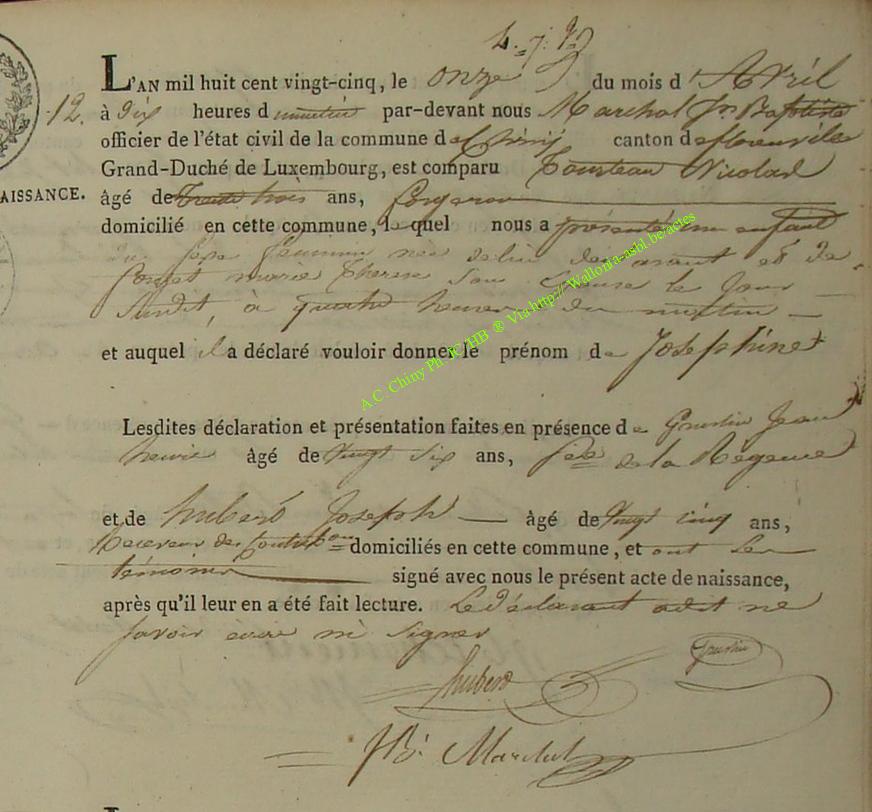 L'AN mil huit cent vingt-cinq, le onze du mois d'Avril
12. à dix heures du matin par-devant nous Marchal Jn Baptiste
officier de l'état civil de la commune de Chiny canton de florenville
AISSANCE. Grand-Duché de Luxembourg, est comparu Nicolas
âgé de trente trois ans, forgeron
domicilié en cette commune, lequel nous a présenté un enfant
du sexe feminin née de lui declarant et de
marie Therese son epouse le jour
susdit, à quatre heures du matin
et auquel il a déclaré vouloir donner le prénom de Josephine
Lesdites déclaration et présentation faites en présence de Goustin Jean
henri âgé de vingt six ans, de la Régence
et de hubert Joseph âgé de vingt cinq ans,
Receveur des domiciliés en cette commune, et ont les
témoins signé avec nous le présent acte de naissance,
après qu'il leur en a été fait lecture. Le déclarant a dit ne
savoir ecrire ni signer
Goustin
hubert
JB. Marchal
A.C. Chiny Ph. JC/HB ® Via http://Wallonia-asbl.be/actes